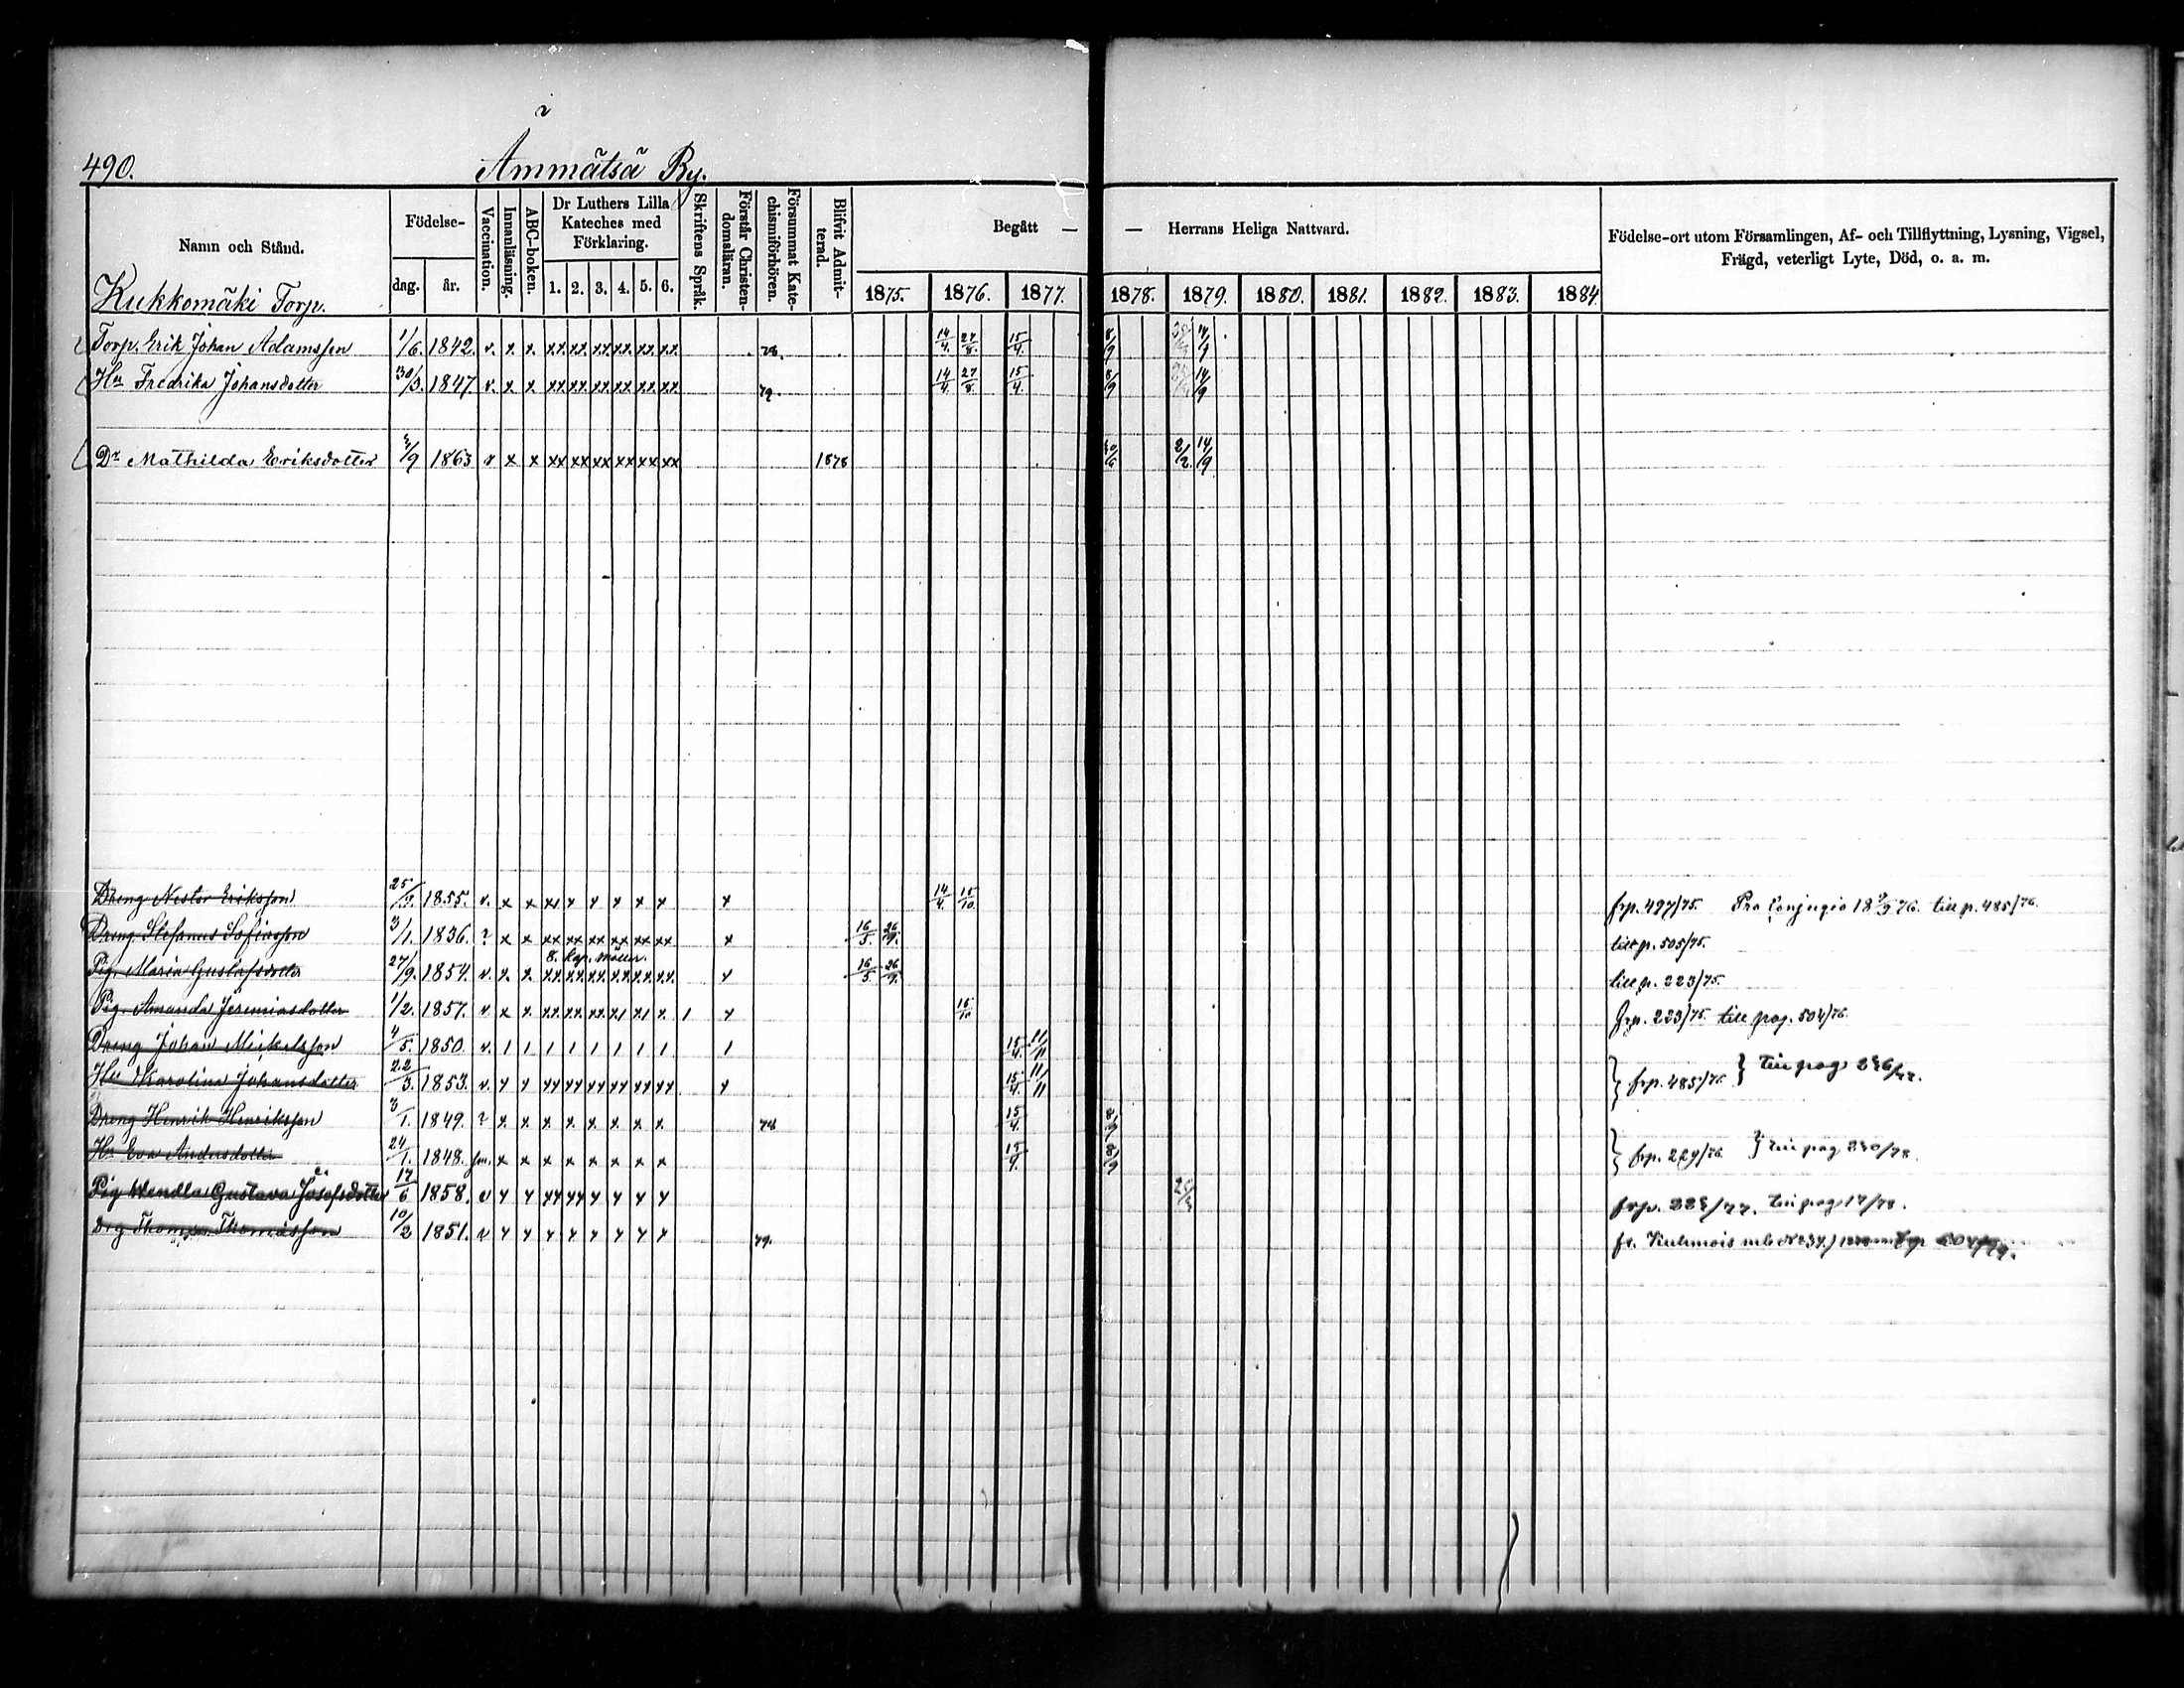 490. Ämmätsä By.
Namn och Stånd. Födelse- dag. år. Vaccination. Innanläsning. ABC-boken. Dr Luthers Lilla Kateches med Förklaring. 1. 2. 3. 4. 5. 6. Skriftens Språk. Förstår Christendomsläran. Försummat Katechismiförhören. Blifvit Admitterad. Begått — — Herrans Heliga Nattvard. 1875. 1876. 1877. 1878. 1879. 1880. 1881. 1882. 1883. 1884 Födelse-ort utom Församlingen, Af- och Tillflyttning, Lysning, Vigsel, Frägd, veterligt Lyte, Död, o. a. m.
Kukkomäki Torp.
Torp. Erik Johan Adamsson 1/6. 1842. v. x. x. xx. xx. xx xx. xx. xx. 78. 14/4. 27/8. 15/4. 8/9
Hu Fredrika Johansdotter 30/3. 1847. v. x x xx. xx. xx. xx. xx. xx. 79. 14/4. 27/8. 15/4. 8/9 14/9
Dr Mathilda Eriksdotter /9 1863 v x x xx xx xx xx xx xx 1878 2/2. 14/9
Dreng Nestor Eriksson 25/3. 1855. v. x x xx x x x x x x 14/4. 15/10. frp. 497/75. Pro Conjugio till p. 485/76.
Dreng Stefanus Sofiasson 3/1. 1836. ? x x xx xx xx xx xx xx x 16/5. 26/9. till p. 505/75.
8.
Pig. Maria Gustafsdotter 27/9. 1854. v. x. x. xx. xx. xx. xx. xx. xx. x 16/5 26/9. till p. 223/75.
Pig. Amanda Jeremiasdotter 1/2. 1857. v x x. xx. xx. xx x/ x/ x. / x 15/10 frp. 223/75 till pag. 504/76.
Dreng Johan Mickelsson 4/5. 1850. v. / / / / / / / / / 15/4. 11/11
Hu Karolina Johansdotter 22/3. 1853. v. x x xx xx xx xx xx xx x 15/4. 11/11 } frp. 485/76 } till pag
Dreng Henrik Henriksson 3/1. 1849. ? x. x. x. x. x. x. x. x. 78 15/4. 8/9
Hu Eva Andersdotter 24/1. 1848. x x x x x x x x 15/4. 8/9 } frp. 229/76 } till pag
Pig Wendla Gustava Josefsdotter 17/6 1858. v x x xx xx x x x x till pag 17/78.
Drg Thomas Thomasson 10/2 1851. v x x x x x x x x 79. fr. Kuhmois mb No 34